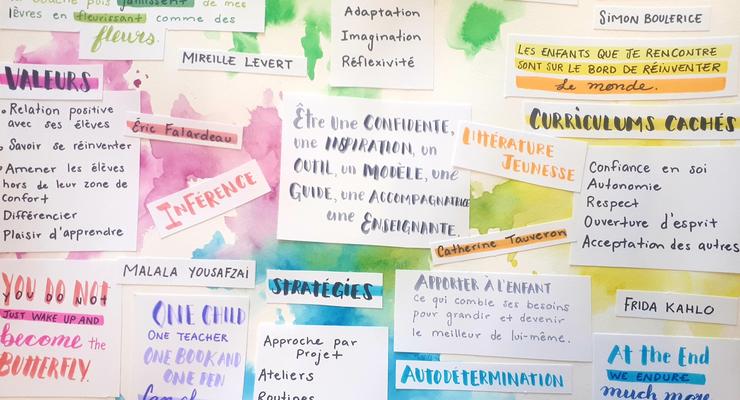 puis jaillissent de mes
lèvres en fleurissant comme des
fleurs.
MIREILLE LEVERT
Adaptation
Imagination
Réflexivité
SIMON BOULERICE
LES ENFANTS QUE JE RENCONTRE
SONT SUR LE BORD DE RÉINVENTER
Le monde.
VALEURS
• Relation positive
avec ses élèves
• Savoir se réinventer
• Amener les élèves
hors de leur zone de
confort
Différencier
Plaisir d'apprendre
Éric Falardeau
INFÉRENCE
Être une CONFIDENTE,
une INSPIRATION, un
OUTIL, un MODÈLE, une
GUIDE, une ACCOMPAGNATRICE
une ENSEIGNANTE.
LITTÉRATURE
JEUNESSE
Catherine Tauveron
CURRICULUMS CACHÉS
Confiance en soi
Autonomie
Respect
Ouverture d'esprit
Acceptation des autres
YOU DO NOT
YOU DO NOT
JUST WAKE UP AND
become the
BUTTERFLY.
MALALA YOUSAFZAI
ONE CHILD
ONE TEACHER
ONE BOOK AND
ONE PEN
STRATÉGIES
Approche par
Projet
Ateliers
Routines
APPORTER À L'ENFANT
ce qui comble ses besoins
pour grandir et devenir
le meilleur de lui-même.
AUTODÉTERMINATION
FRIDA KAHLO
At the End
WE ENDURE
much more